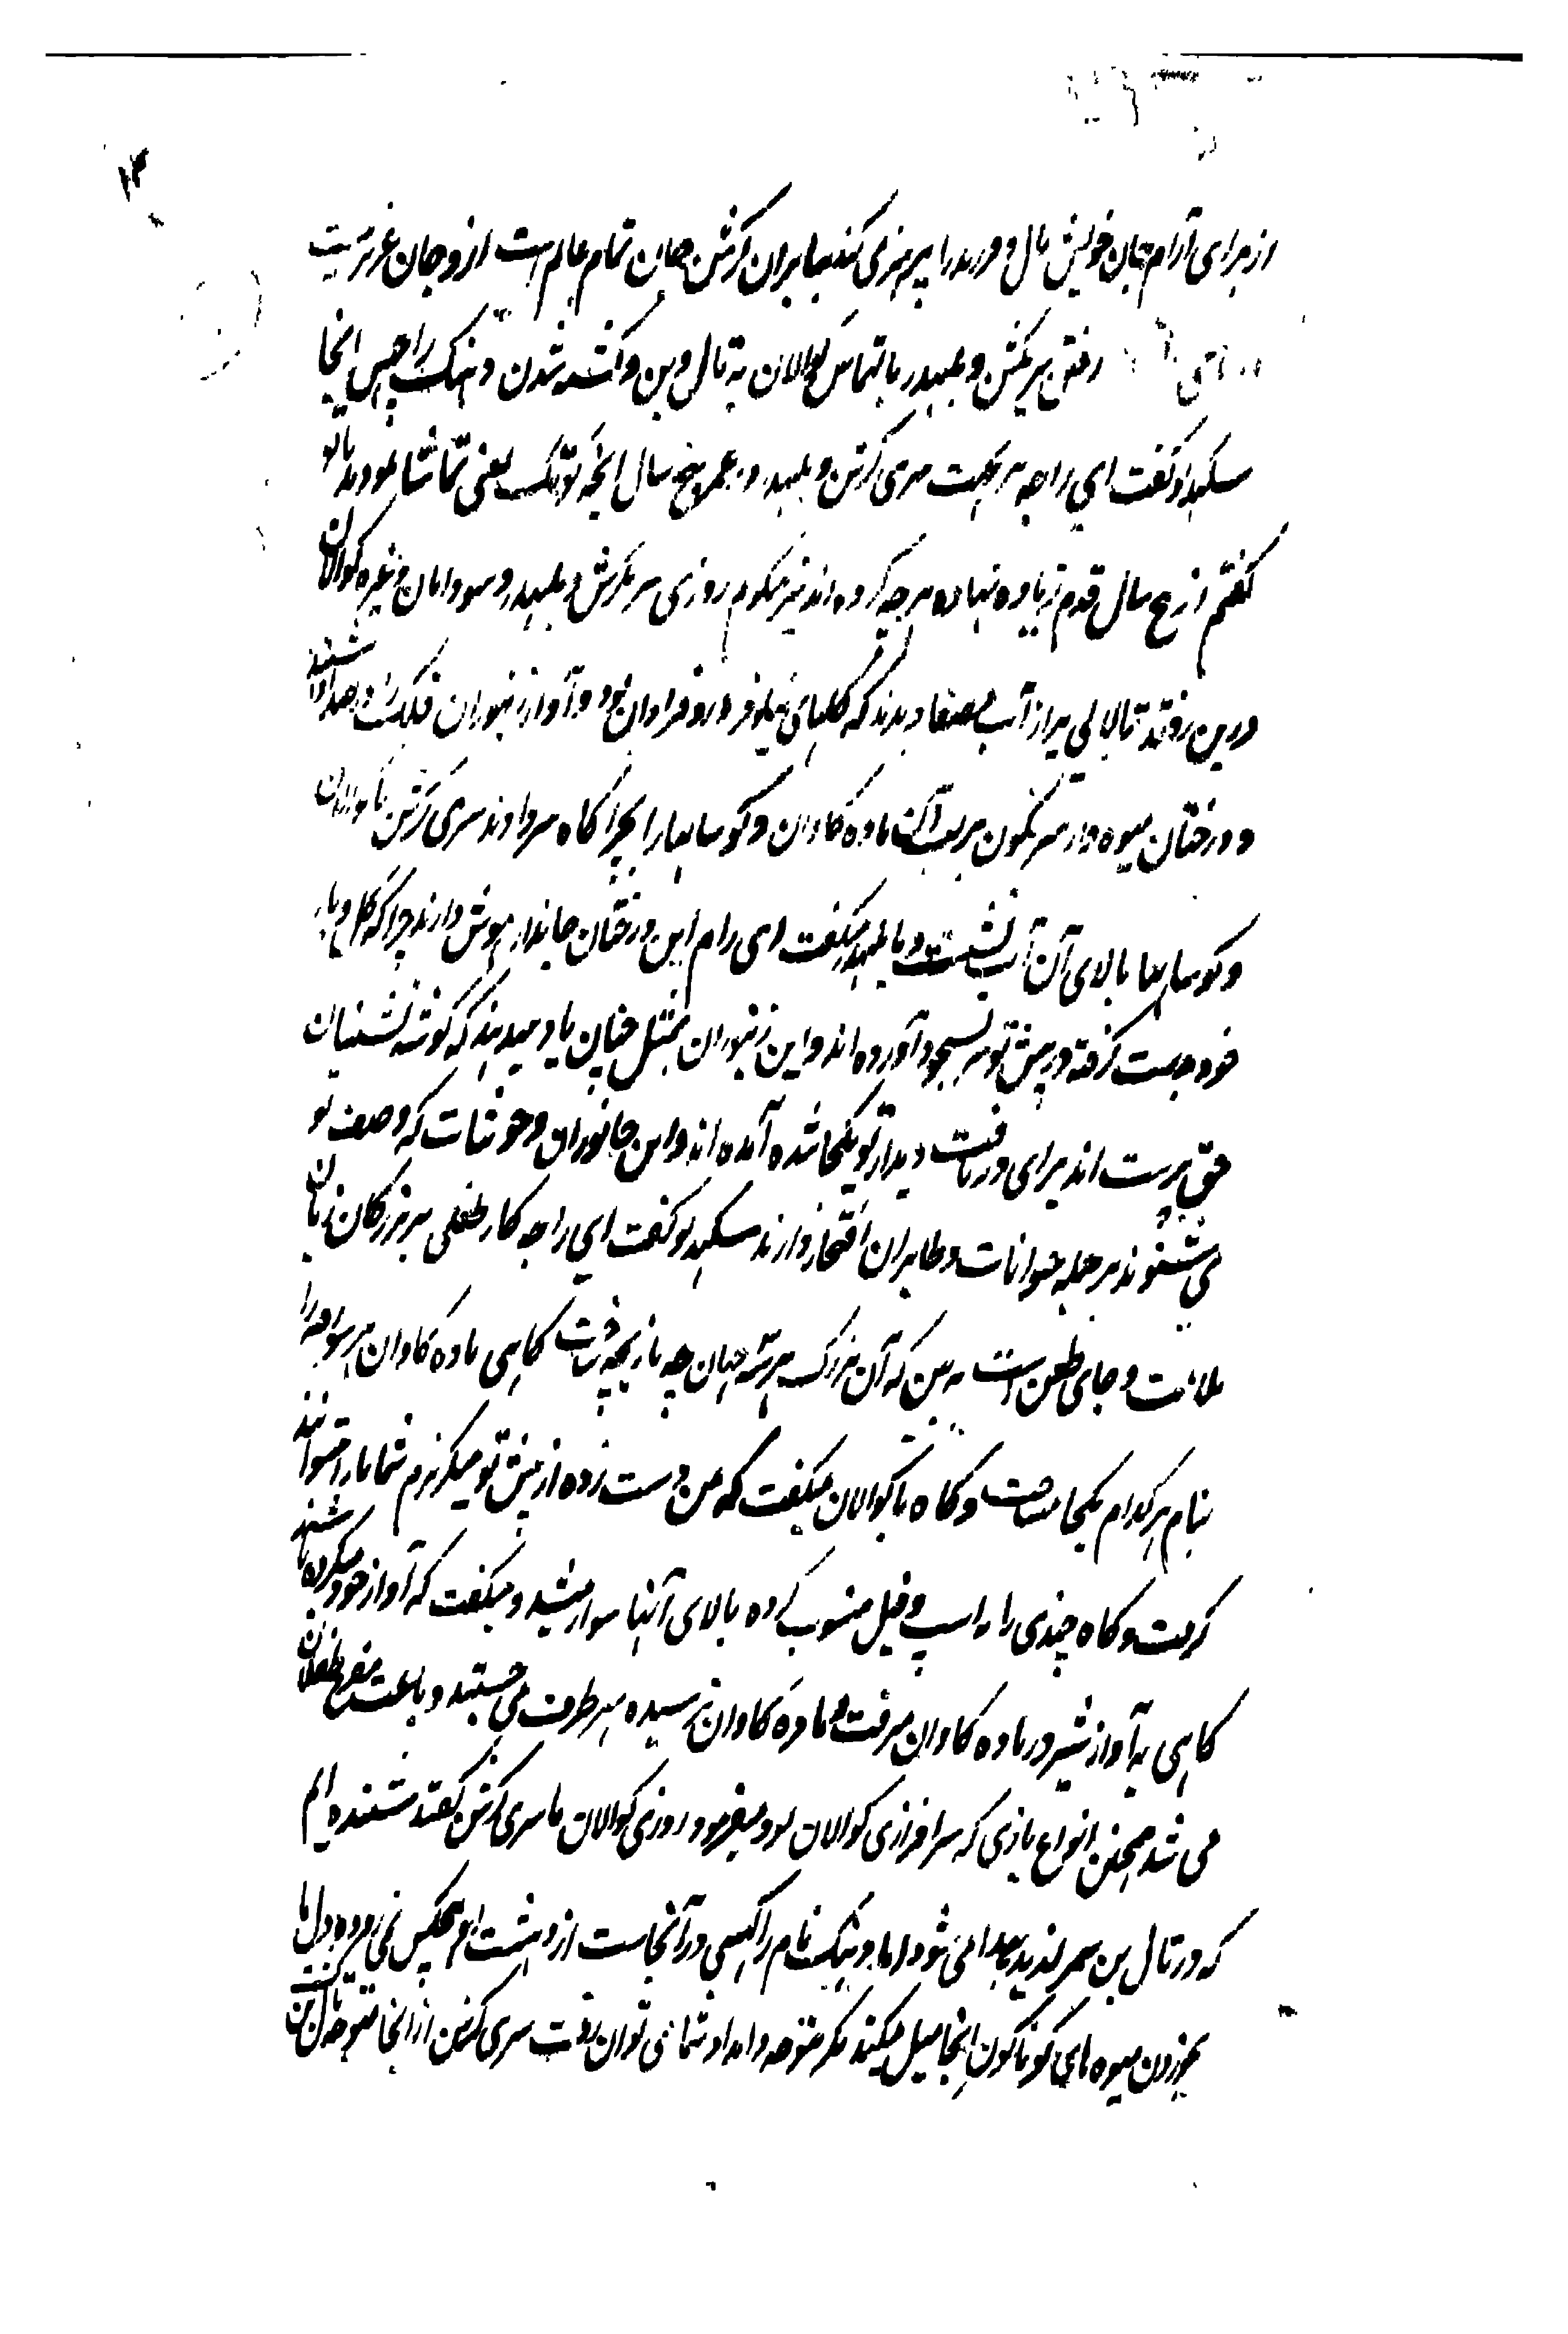 ۱۴
از برای آرام جان خویش مال و فرزند را پرهیزی کند بنابران کرشن جان تمام عالم است ازو جان عزیزتر نیست
رفتن سریکشن و بلبهدر بالتماس کوالان به تال وین و کشته شدن دهینک راچهس اینجا
سکهدیو گفت ای راجه پریچهت سری کرشن و بلبهدر در عمر پنج سال آنچه کوتک یعنی تماشا نمودند با تو
گفتم از پنج سال قدم زیاده نهاده هرچه کرده اند نیز میگویم روزی سریکرشن و بلبهدر و سودامان و غیره کوالان
درین رفتند تالابی پر از آب مصفا دیدند که گلهای نیلوفر درو فراوان بود و آواز زنبوران فلک را در صدا داشتند
و درختان میوه دار سرنگون بر لب آن ماده گاوان و گوسالها را بچراگاه سر دادند سری کرشن با کوالان
و گوسالها بالای آن آب نشست و با بلبهدر میگفت ای رام این درختان جاندار هوش دارند چرا که گل و بار
خود بدست گرفته در پیش تو سر بسجود آورده اند و این زنبوران بمثل چنان یاد میدهند که گوشه نشینان
حق پرست اند برای دریافت دیدار تو یکجا شده آمده اند و این جانوران وحوشات که وصف تو
می شنوند بر جمله حیوانات و طایران افتخار دارند سکهدیو گفت ای راجه کار طفلی بر بزرگان زبان
ملامت و جای طعن است ببین که آن بزرگ سرشته جهان چه بازیچه داشت گاهی ماده گاوان هر سو را
بنام هر کدام یکجا میساخت و گاه با کوالان میگفت که من دست زده از پیش تو میگریزم شما مارا نتوانند
گرفت و گاه چندی را به اسپ و فیل منسوب کرده بالای آنها سوار میشد و میگفت که آواز خود میکرده باشند
گاهی به آواز شیر در ماده گاوان میرفت و ماده گاوان ترسیده هر طرف می جستند و باعث تفریح طفلان
می شد همچنین انواع بازی که سرافرازی کوالان بود میفرمود روزی کوالان با سری کرشن گفتند شنیده ایم
که در تال بن ثمر لذید پیدا می شود اما دهینک نام راکسی در آنجاست از دهشت او هیچکس نمی رود و دل ما
بخوردن میوه های گوناگون آنجا میل میکند مگر متوجه و امداد شما می توان رفت سری کرشن از آنجا متوجه تال بن